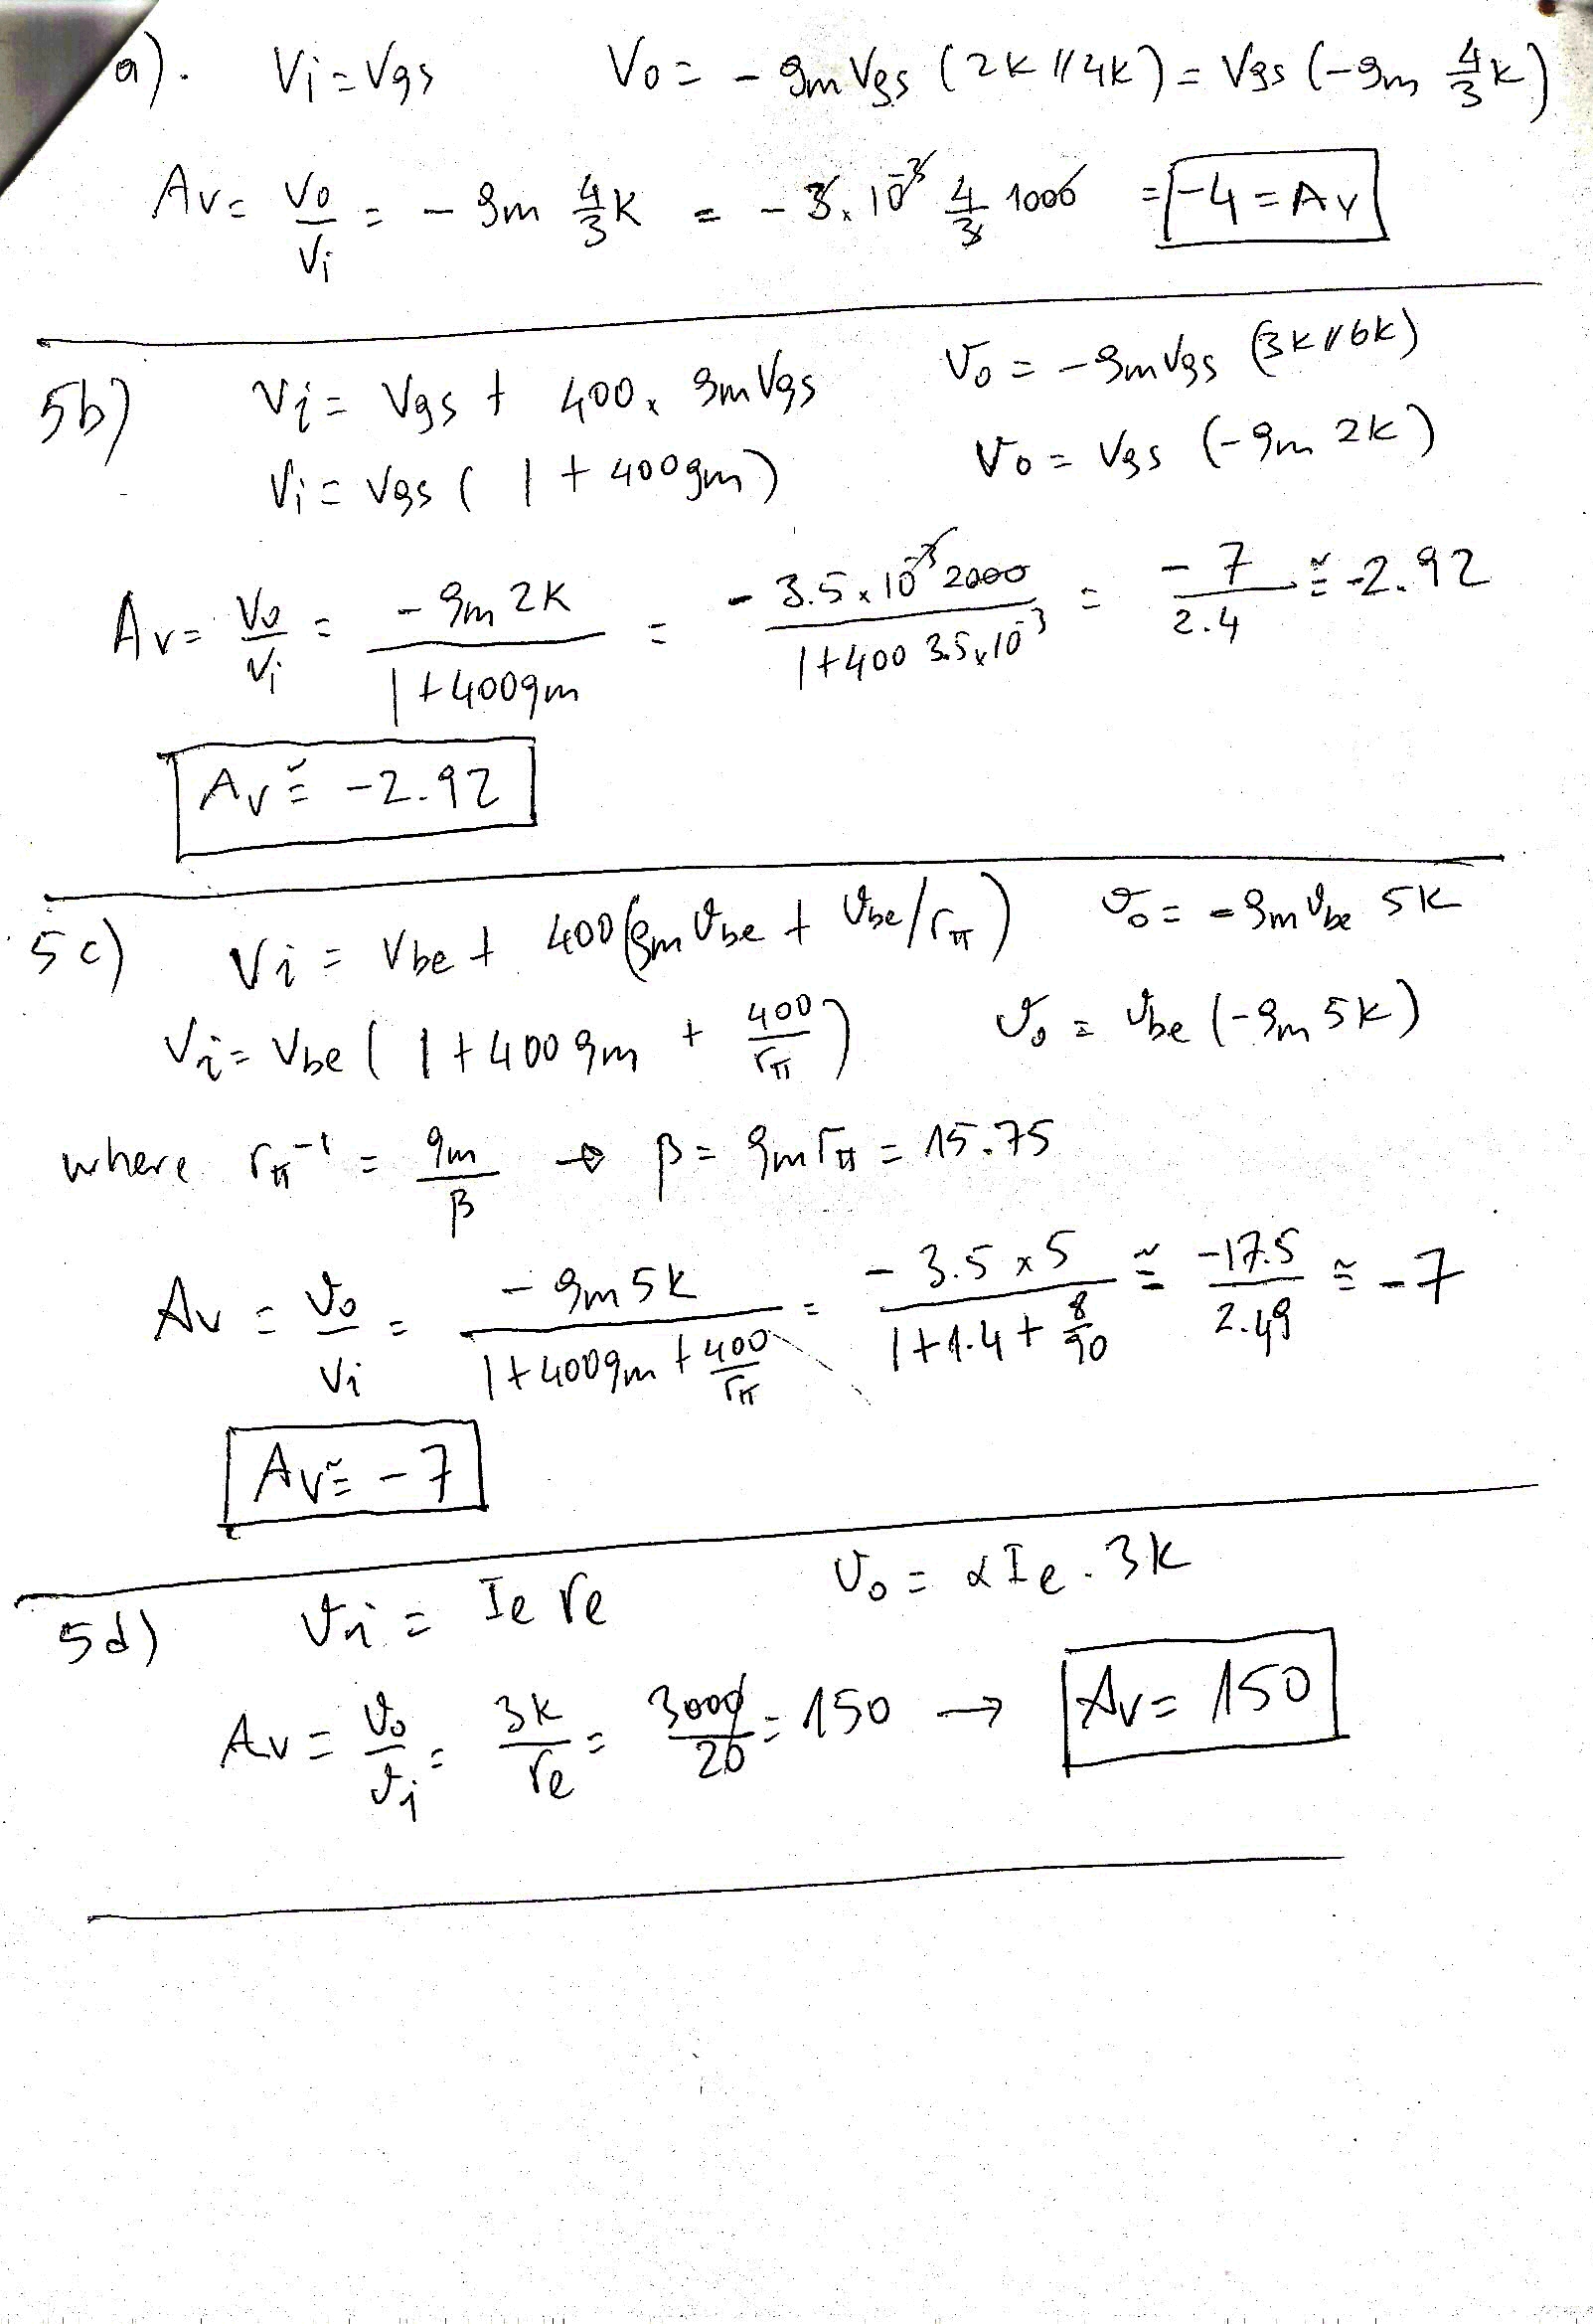 a). Vi = Vgs Vo = - gm Vgs (2k // 4k) = Vgs (-gm 4/3 k)
Av = Vo/Vi = - gm 4/3 k = - 3. 10^-3 4/3 1000 = -4 = Av
5b) Vi = Vgs + 400 x gm Vgs Vo = - gm Vgs (3k // 6k)
Vi = Vgs ( 1 + 400gm) Vo = Vgs (-gm 2k)
Av = Vo/Vi = -gm 2k / 1+400gm = -3.5 x 10^-3 2000 / 1+400 3.5 x 10^-3 = -7/2.4 ≅ -2.92
Av ≅ -2.92
5c) Vi = Vbe + 400(gm Vbe + Vbe/rπ) Vo = -gm Vbe 5k
Vi = Vbe ( 1 + 400 gm + 400/rπ) Vo = Vbe (-gm 5k)
where rπ^-1 = gm/β → β = gm rπ = 15.75
Av = Vo/Vi = -gm 5k / 1+400gm+400/rπ = -3.5 x 5 / 1+1.4+8/90 ≅ -17.5/2.49 ≅ -7
Av ≅ -7
5d) Vi = Ie re Vo = αIe . 3k
Av = Vo/Vi = 3k/re = 3000/20 = 150 → Av = 150